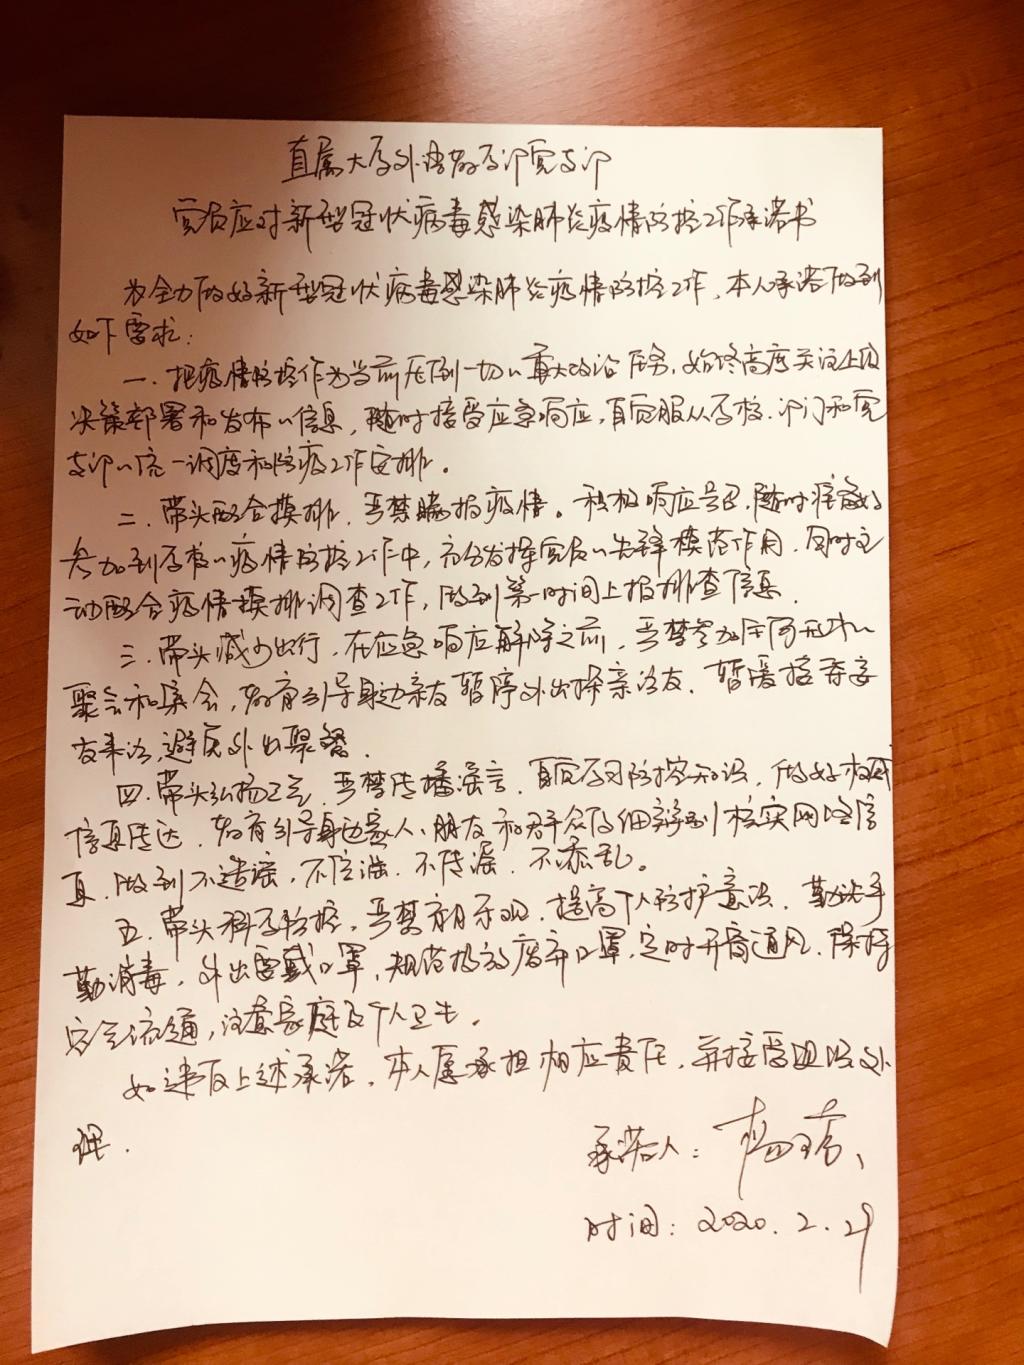 直属大学外语教学部党支部
党员应对新型冠状病毒感染肺炎疫情防控工作承诺书
为全力做好新型冠状病毒感染肺炎疫情防控工作，本人承诺做到
如下要求：
一、把疫情防控作为当前压倒一切的重大政治任务，始终高度关注上级
决策部署和发布的信息，随时接受应急响应，自觉服从学校、部门和党
支部的统一调度和防疫工作安排。
二、带头配合摸排，严禁瞒报疫情。积极响应号召，随时准备好
参加到学校的疫情防控工作中，充分发挥党员的先锋模范作用，同时主
动配合疫情摸排调查工作，做到第一时间上报排查信息。
三、带头减少出行，在应急响应解除之前，严禁参加任何形式的
聚会和集会，教育引导身边亲友暂停外出探亲访友，暂缓接待亲
友来访，避免外出聚餐。
四、带头弘扬正气，严禁传播谣言，自觉学习防控知识，做好权威
信息传达，教育引导身边家人、朋友和群众仔细辨别核实网络信
息，做到不造谣，不信谣，不传谣，不添乱。
五、带头科学防控，严禁盲目乐观，提高个人防护意识，勤洗手
勤消毒，外出要戴口罩，规范投放废弃口罩，定时开窗通风，保持
空气流通，注意家庭及个人卫生。
如违反上述承诺，本人愿承担相应责任，并接受组织处
理。
承诺人：杨
时间：2020.2.29